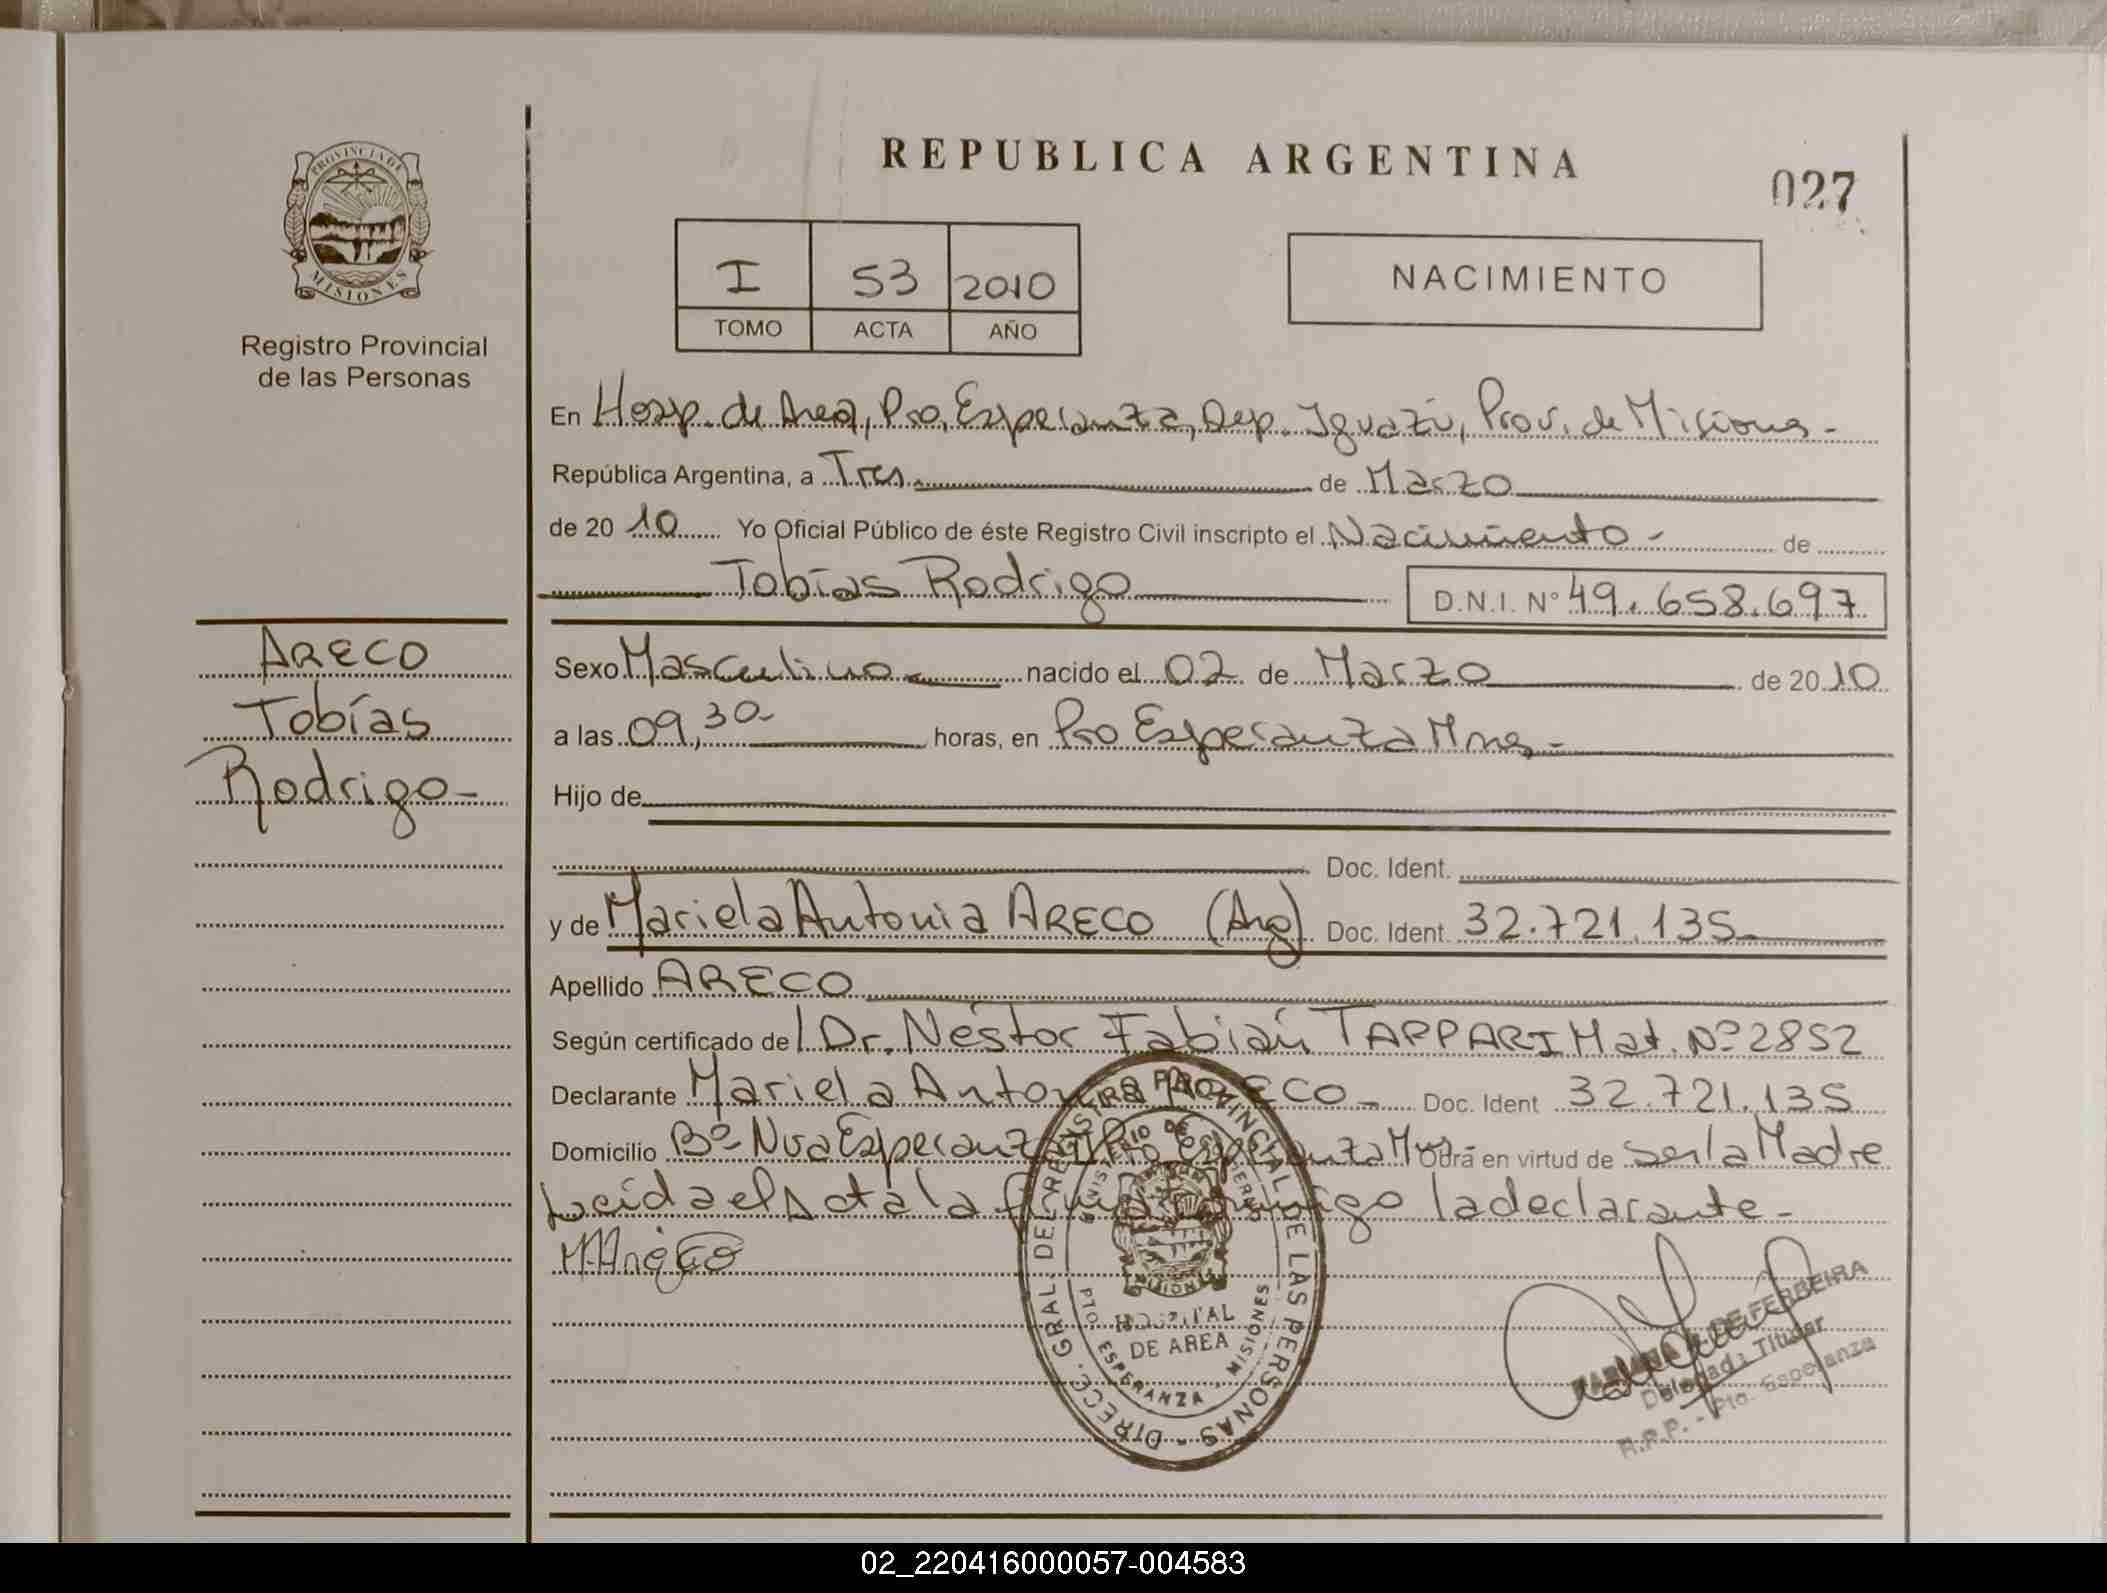 REPUBLICA ARGENTINA
027
PROVINCIA DE
MISIONES
Registro Provincial
de las Personas
I 53 2010
TOMO ACTA AÑO
NACIMIENTO
En Hosp. de Area, Pto. Esperanza, Dep. Iguazú, Prov. de Misiones-
República Argentina, a Tres de Marzo
de 20 10 Yo Oficial Público de éste Registro Civil inscripto el Nacimiento- de
Tobías Rodrigo D.N.I. N° 49.658.697
ARECO
Tobías
Rodrigo-
Sexo Masculino nacido el 02 de Marzo de 20 10
a las 09,30- horas, en Pto Esperanza Mnes-
Hijo de
Doc. Ident.
y de Mariela Antonia ARECO (Arg) Doc. Ident. 32.721.135-
Apellido ARECO
Según certificado de l Dr. Néstor Fabián TAPPARI Mat. Nº 2852
Declarante Mariela Antonia ARECO- Doc. Ident 32.721.135
Domicilio Bº Nva Esperanza Pto Esperanza Mnes Obra en virtud de ser la Madre
Leída el Acta la firma conmigo la declarante-
M.Areco
DIREC. GRAL. DEL REGISTRO PROVINCIAL DE LAS PERSONAS
MINISTERIO DE GOBIERNO
MISIONES
HOSPITAL
DE AREA
PTO. ESPERANZA - MISIONES
DE FERREIRA
Delegada Titular
R.P.P. - Pto. Esperanza
02_220416000057-004583